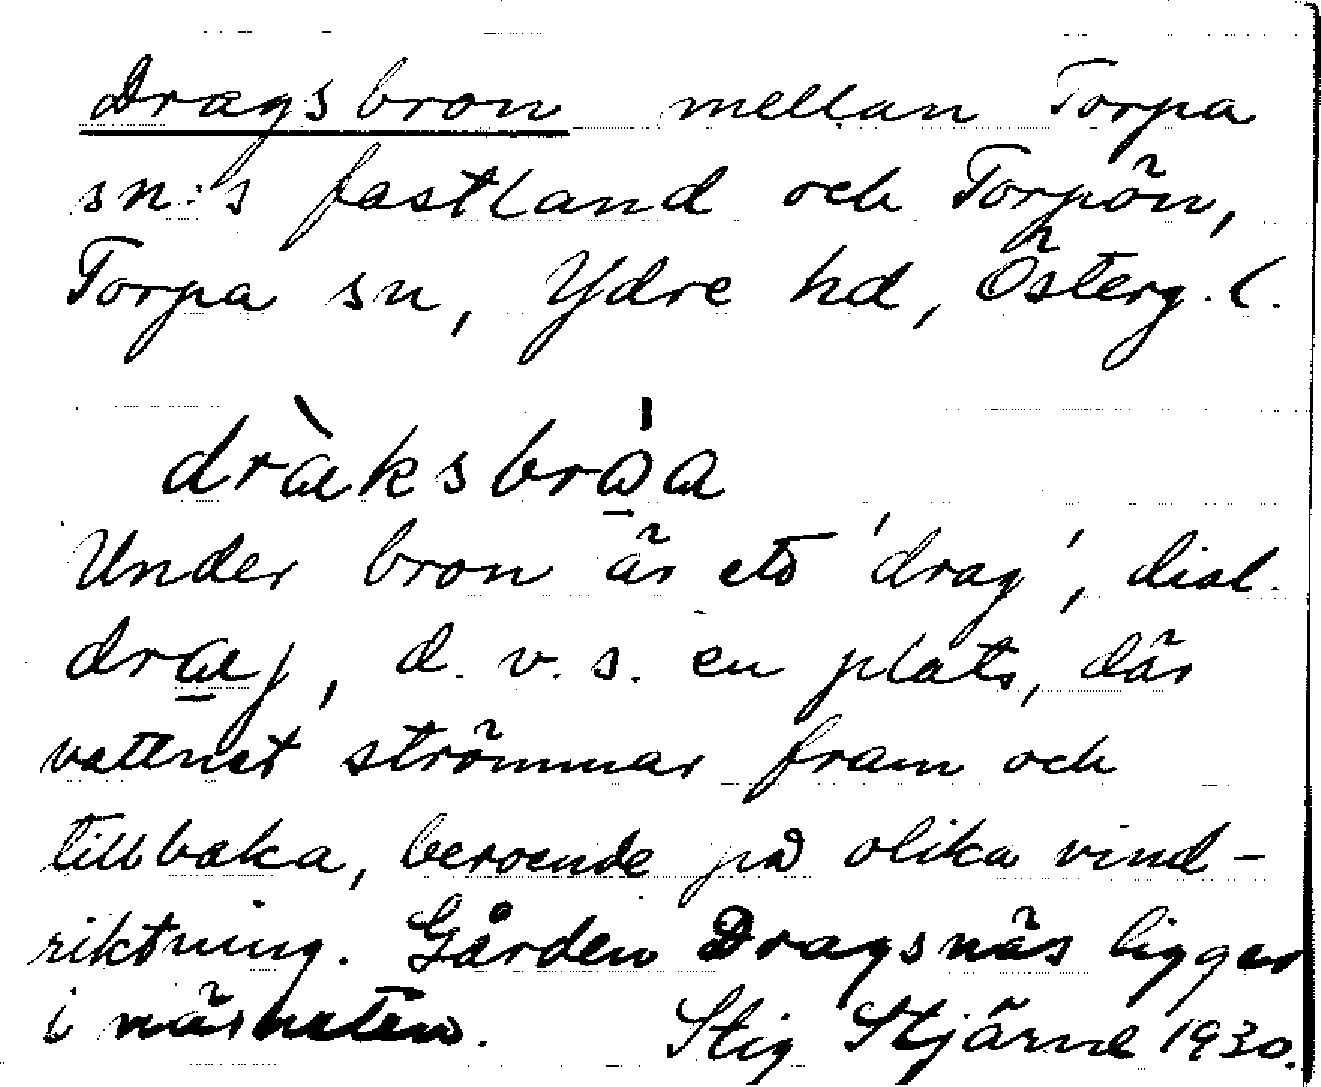 Dragsbron mellan Torpa
sn:s fastland och Torpön,
Torpa sn, Ydre hd, Österg. l.
Under bron är ett 'drag', dial.
d. v. s. en plats, där
vattnet strömmar fram och
tillbaka, beroende på olika vind-
riktning. Gården Dragsnäs ligger
i närheten. Stig Stjärne 1930.